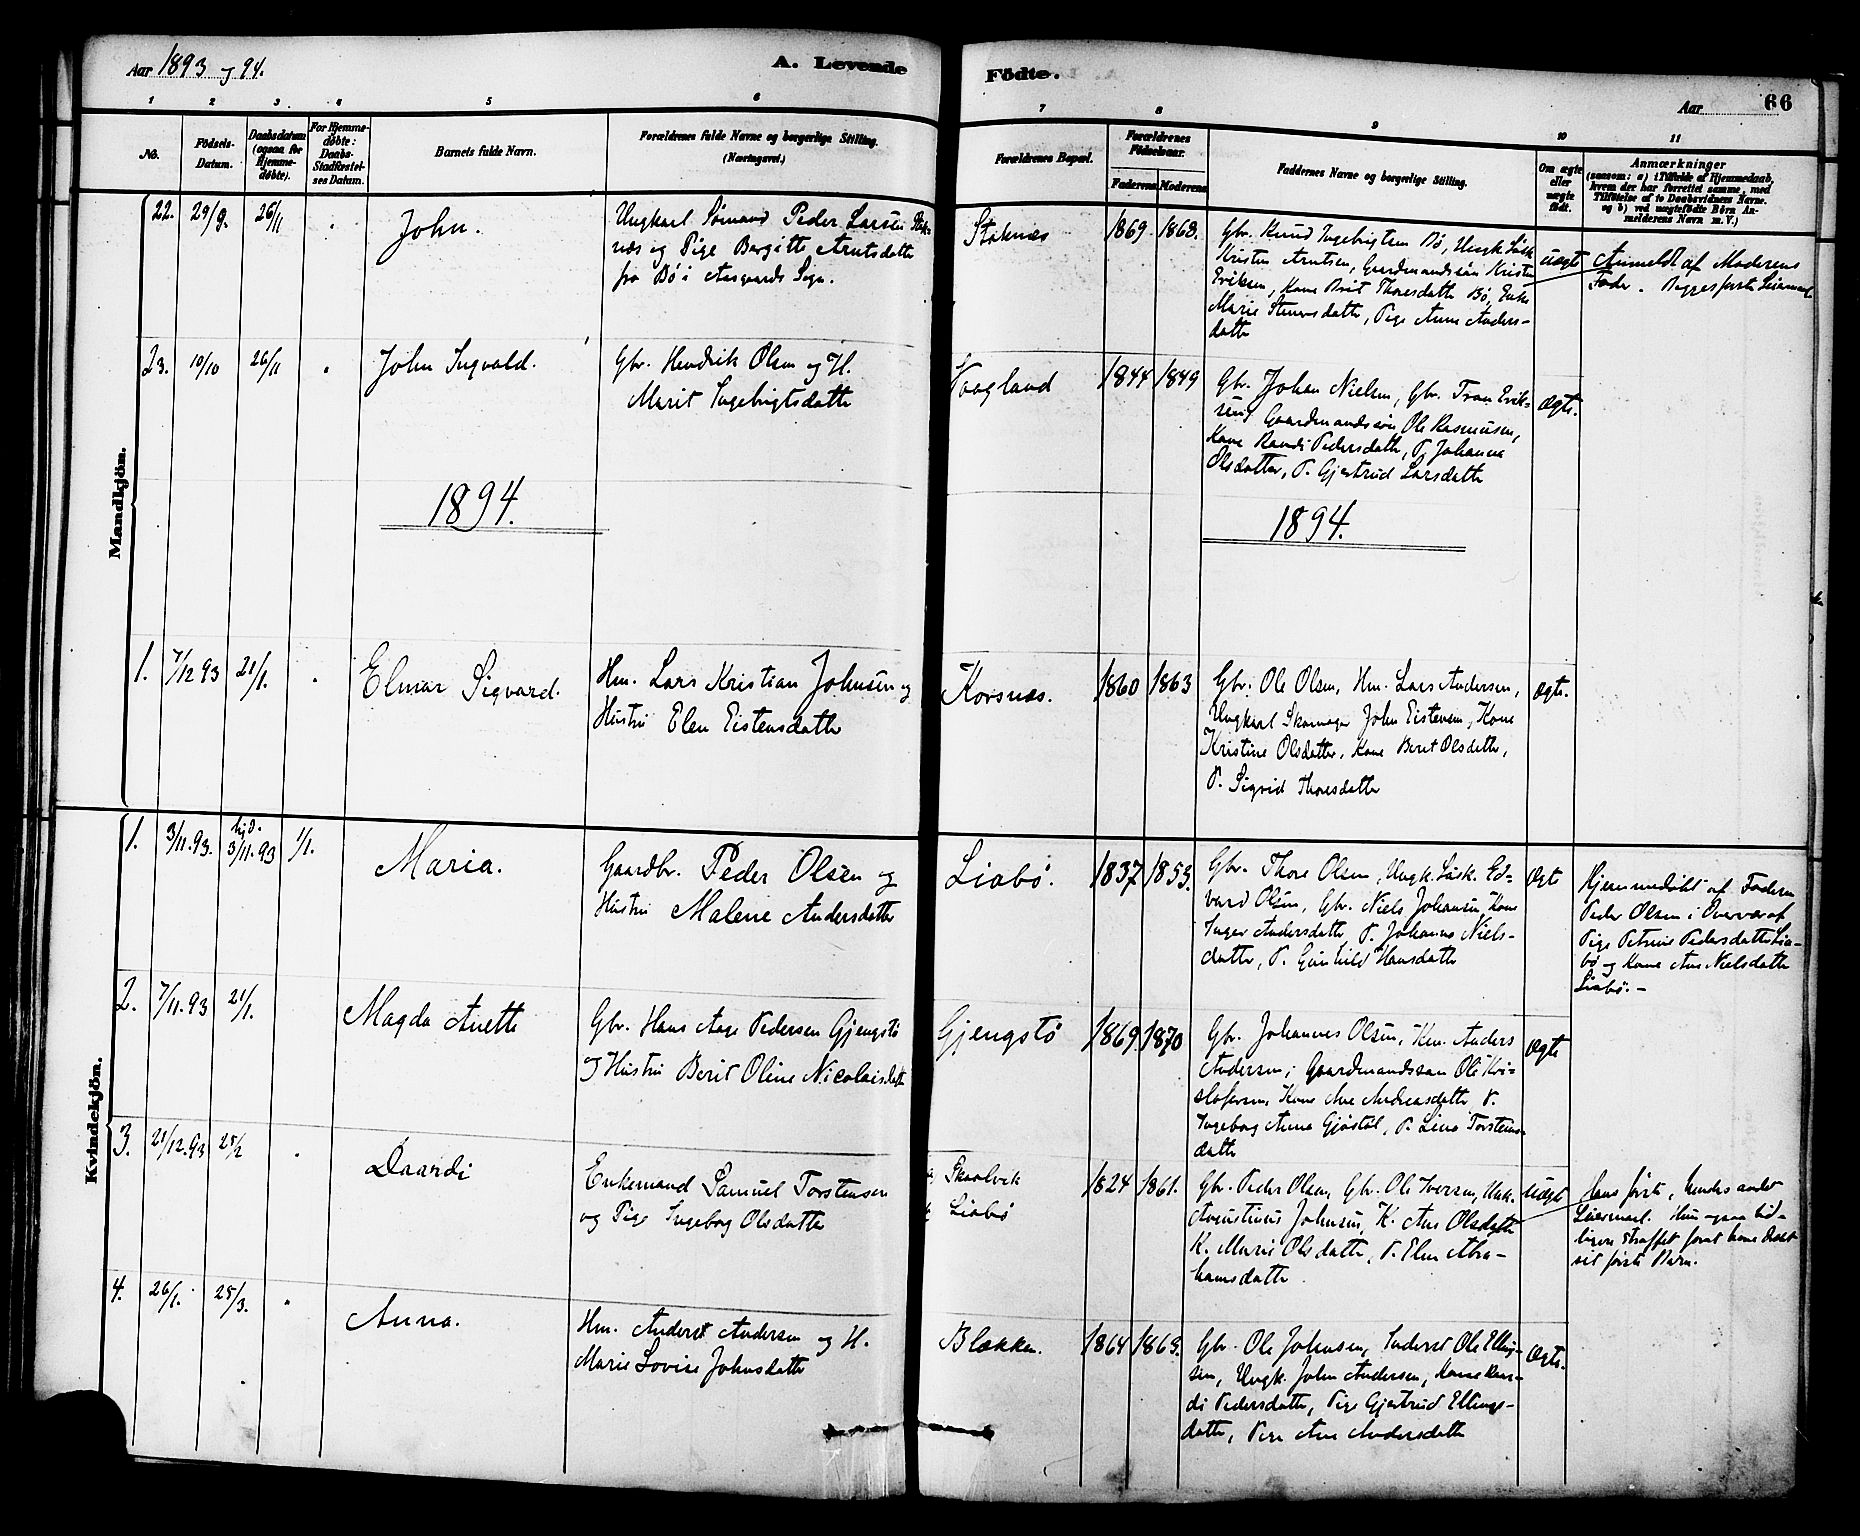 Aar 1893 og 94.
A. Levende
Födte.
Aar
66
1 2 3 4 5 6 7 8 9 10 11
No.
Födsels-Datum.
Daabsdatum (ogsaa for Hjemme-döbte).
For Hjemme-döbte: Daabs-Stadfæstel-ses Datum.
Barnets fulde Navn.
Forældrenes fulde Navne og borgerlige Stilling.
(Næringsvei.)
Forældrenes Bopæl.
Forældrenes Födselsaar.
Faderens Moderens
Faddernes Navne og borgerlige Stilling.
Om ægte eller uægte födt.
Anmærkninger
(saasom: a) i Tilfælde af Hjemmedaab,
hvem der har forrettet samme, med
Tilföielse af to Daabsvidners Navne.
og b) ved uægtefödte Börn An-
melderens Navn m. V.)
Mandkjön.
22. 29/9. 26/11 "
John.
Ungkarl Sømand Peder Larsen Stok-
næs og Pige Bergitte Arntsdatter
fra Bø i Aasgaards Sogn.
Stoknæs
1869. 1868.
Gbr. Knud Ingebrigtsen Bø, Ungk. Søsk.
Kristen Arntsen, Gaardmandssøn Kristen
Eriksen, Kone Brit Thoresdatter Bø, Enke
Marie Steversdatter, Pige Anne Anders-
datter
uægte
Anmeldt af Moderens
Fader. Begges første Leiermaal
23. 10/10 26/11 "
John Ingvald.
Gbr. Hendrik Olsen og H.
Marit Ingebrigtsdatter
Vaagland
1844 1849
Gbr. Johan Nielsen, Gbr. Tron Erik-
sen, Gaardmandssøn Ole Rasmussen,
Kone Randi Pedersdatter, P. Johanna
Olsdatter, P. Gjertrud Larsdatter
Ægte.
1894.
1894.
1. 7/12 93 21/1. "
Elmar Sigvard.
Hm. Lars Kristian Johnsen og
Hustru Elen Eistensdatter
Korsnæs.
1860 1863
Gbr. Ole Olsen, Hm. Lars Andersen,
Ungkarl Skomager John Eistensen, Kone
Kristine Olsdatter, Kone Berit Olsdatter,
P. Sigrid Thoresdatter
Ægte.
Kvindekjön.
1. 3/11. 93. hjd. 3/11. 93 1/1.
Maria.
Gaardbr. Peder Olsen og
Hustru Malene Andersdatter
Liabø.
1837 1853.
Gbr. Thore Olsen, Ungk. Søsk. Ed-
vard Olsen, Gbr. Niels Johansen, Kone
Inger Andersdatter, P. Johanna Niels-
datter, P. Gunhild Hansdatter
Ægte
Hjemmedøbt af Faderen
Peder Olsen i Overvær af
Pige Petrine Pedersdatter Lia-
bø og Kone Ane Nielsdatter
Liabø. -
2. 7/11. 93 21/1.
Magda Anette
Gbr. Hans Aage Pedersen Gjengstø
og Hustru Berit Oline Nicolaisdatter
Gjengstø
1869. 1870
Gbr. Johannes Olsen, Hm. Anders
Andersen, Gaardmandssøn Ole Kri-
stofersen, Kone Ane Andreasdatter P.
Ingeborg Anna Gjøstøl, P. Lina Torstens-
datter
Ægte
3. 21/12. 93 25/2 "
Daardi
Enkemand Samuel Torstensen
og Pige Ingeborg Olsdatter
Skaalvik
Liabø
1824 1861.
Gbr. Peder Olsen, Gbr. Ole Iversen, Ungk.
Augustinus Johnsen, K. Ane Olsdatter
K. Marie Olsdatter, P. Elen Abra-
hamsdatter.
Uægte
Hans første, hendes andet
Leiermaal. Hun ogsaa tid-
ligere straffet for at have dræbt
sit første Barn.
4. 26/1. 25/3. "
Anna.
Hm. Anders Andersen og H.
Marie Lovise Johnsdatter
Blækken.
1864 1869.
Gbr. Ole Johnsen, Inderst Ole Elling-
sen, Ungk. John Andersen, Kone Ran-
di Pedersdatter, Pige Gjertrud Ellings-
datter, Pige Ane Andersdatter
Ægte.